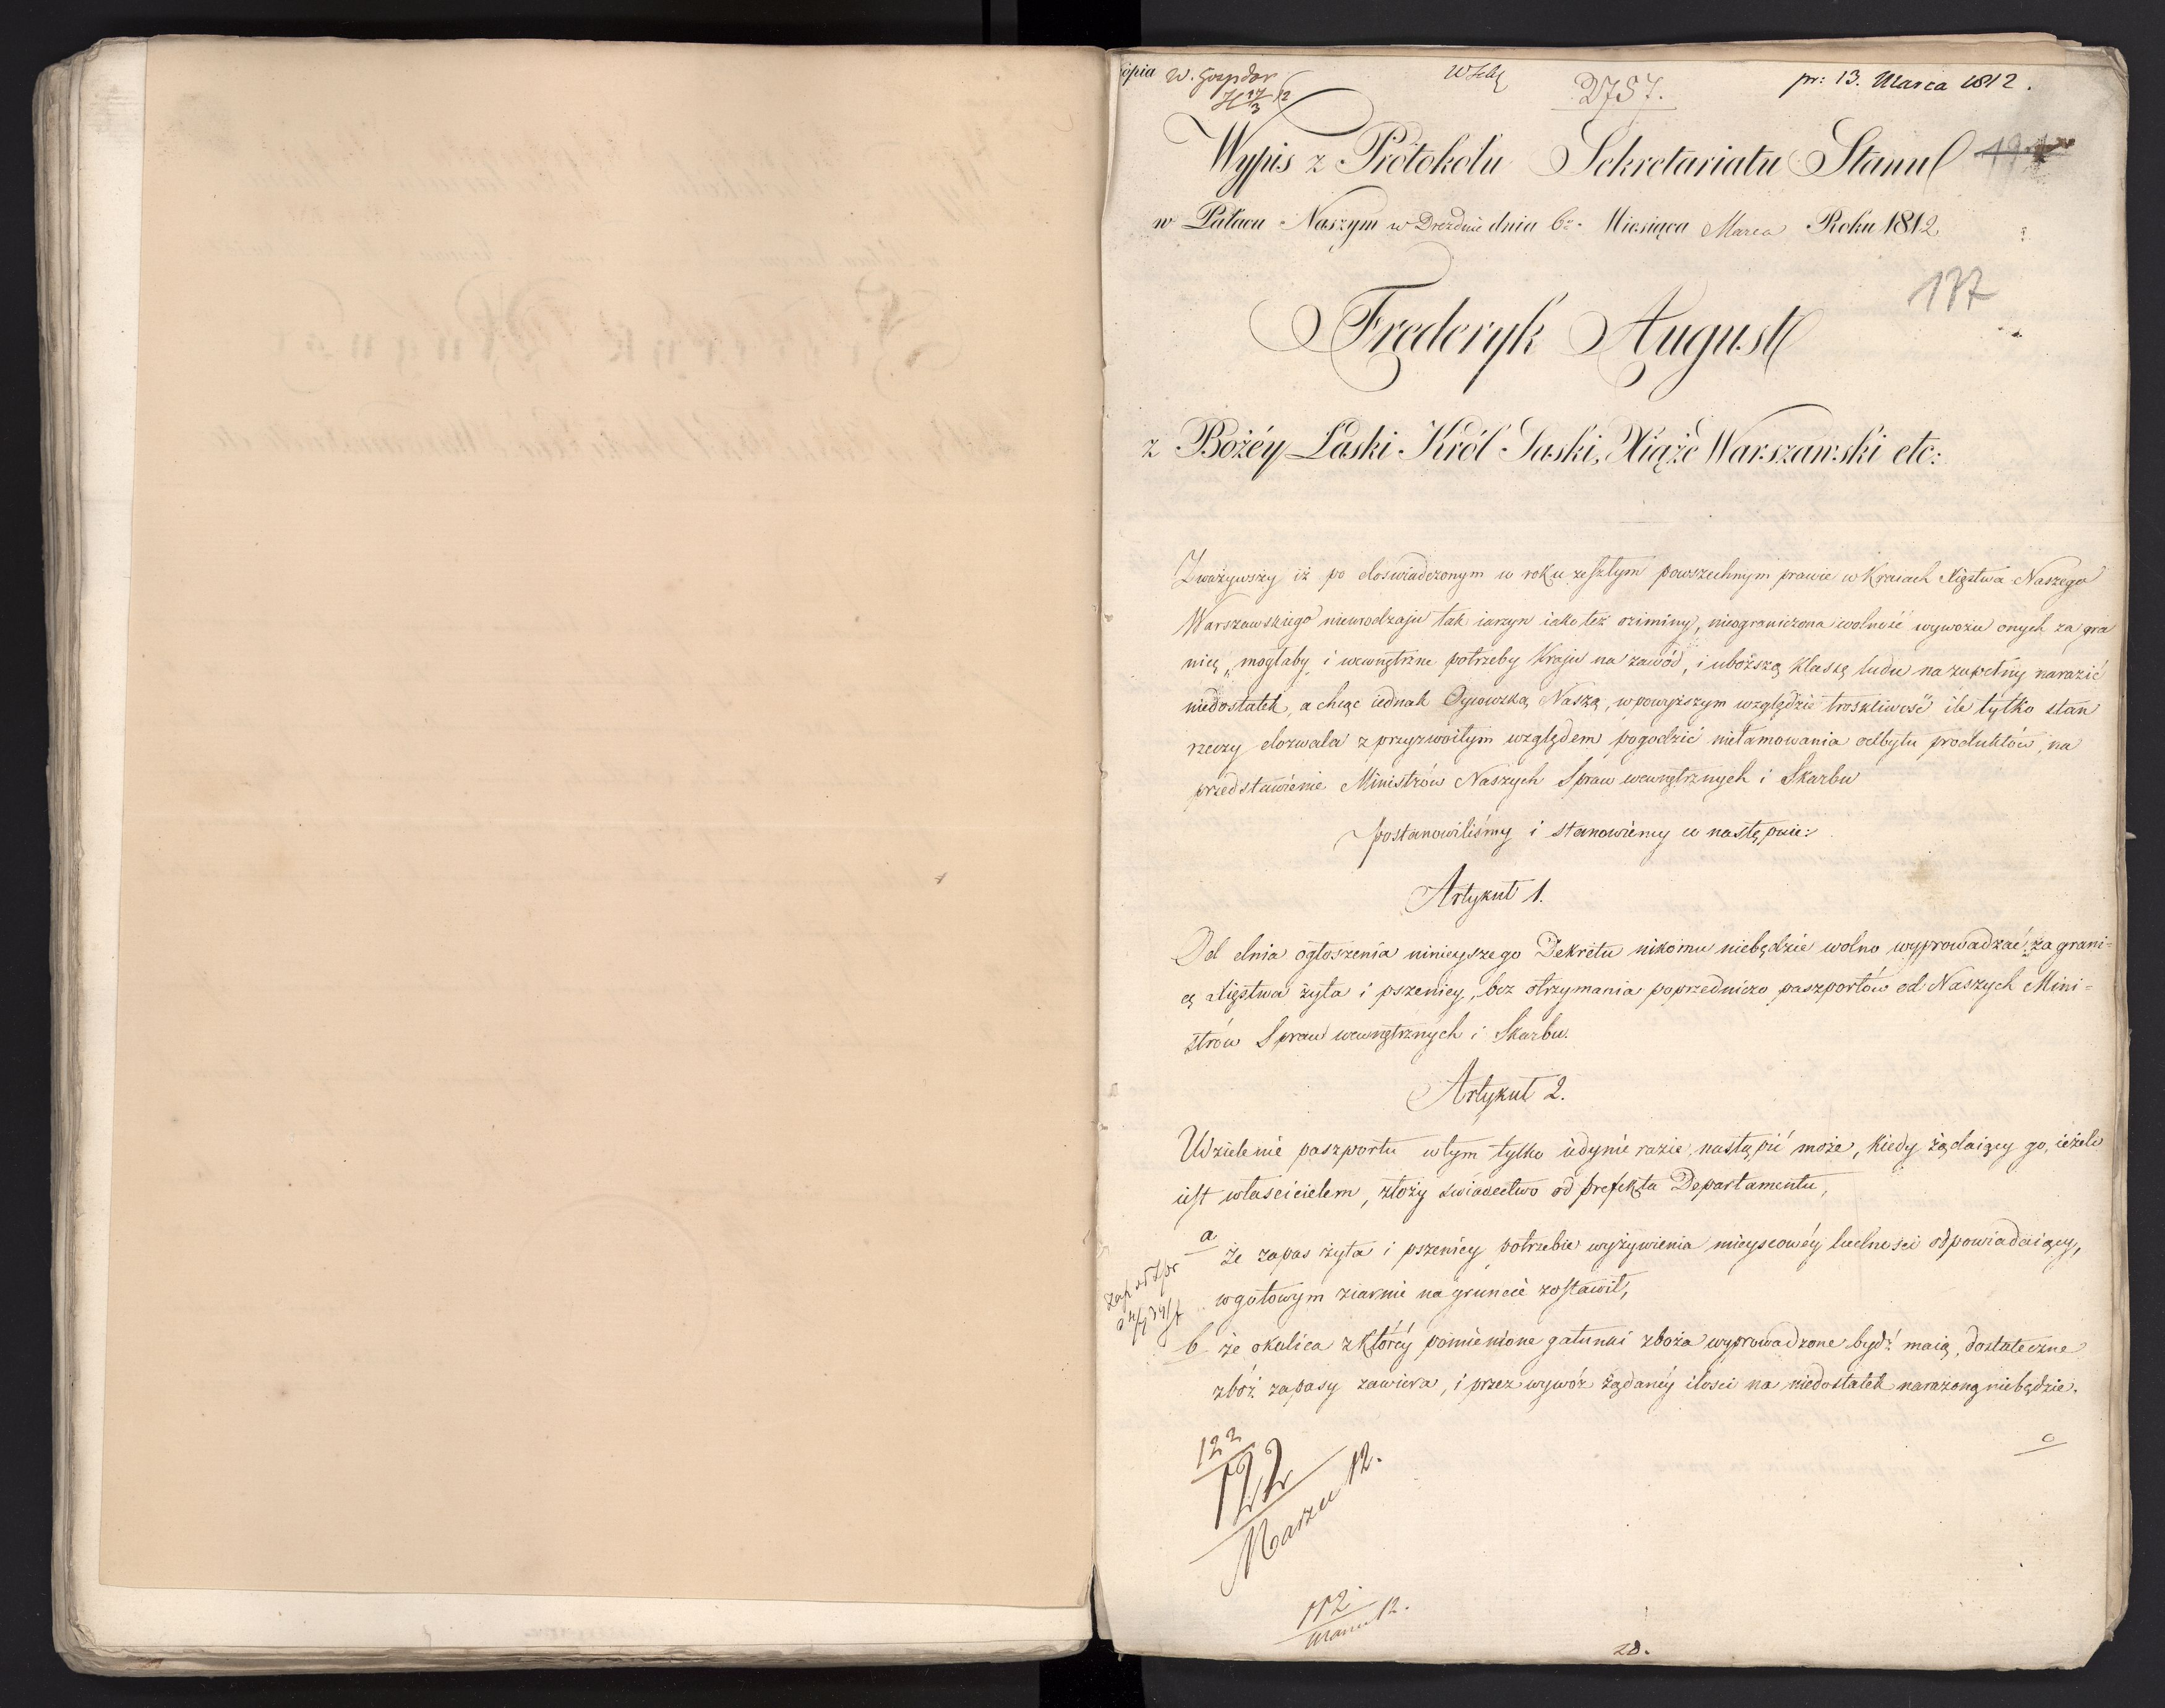 kopia W. Gospodar
2757.
pr: 13. Marca 1812.
Wypis z Protokołu Sekretariatu Stanu
w Pałacu Naszym w Dreźnie dnia 6go Miesiąca Marca Roku 1812
177
Frederyk August
z Bożéy Łaski Król Saski, Xiąże Warszawski etc:
Zważywszy iż po doswiadczonym w roku zeszłym powszechnym prawie w Kraiach Xięstwa Naszego
Warszawskiego nieurodzaju tak iarzyn iako też oziminy, nieograniczona wolność wywozu onych za gra
nicę, mogłaby i wewnętrzne potrzeby Kraju na zawód, i uboższą klassę ludu na zupełny narazić
niedostatek, a chcąc iednak Oycowską Naszą, w powyższym względzie troskliwość ile tylko stan
rzeczy dozwala z przyzwoitym względem pogodzić nietamowania odbytu produktów, na
przedstawienie Ministrów Naszych Spraw wewnętrznych i Skarbu
postanowiliśmy i stanowiemy co następuie:
Artykuł 1.
Od dnia ogłoszenia ninieyszego Dekretu nikomu niebędzie wolno wyprowadzać za grani=
cę Xięstwa żyta i pszenicy, bez otrzymania poprzedniczo paszportów od Naszych Mini=
strów Spraw wewnętrznych i Skarbu.
Artykuł 2.
Udzielenie paszportu w tym tylko iedynie razie nastąpić może, kiedy żądaiący go, ieżeli
iest właścicielem, złoży świadectwo od prefekta Departamentu,
a że zapas żyta i pszenicy potrzebie wyżywienia mieyscowéy ludności odpowiadaiący,
w gotowym ziarnie na gruncie zostawił,
b że okolica z któréy pomienione gatunki zboża wyprowadzone bydź maią, dostateczne
zbóż zapasy zawiera, i przez wywóz żądanéy ilosci na niedostatek narażoną niebędzie.
c
122
122
Marzu 12.
112
12.
28.